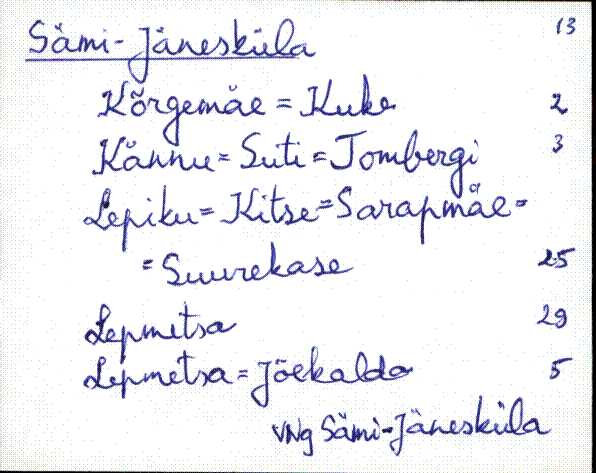 Sämi-Jänesküla 13
Kõrgemäe = Kuke 2
Kännu = Suti = Tombergi 3
Lepiku = Kitse = Sarapmäe =
= Suurekase 25
Lepmetsa 29
Lepmetsa = Jõekalda 5
VNg Sämi-Jänesküla